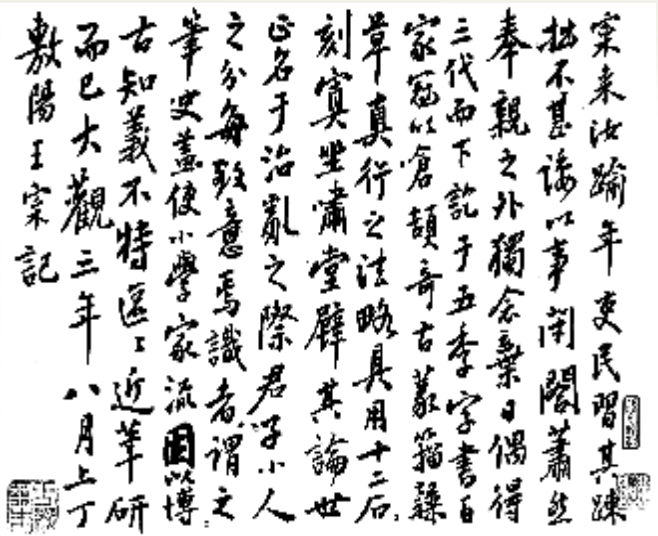 寀来汝踰年吏民習其踈
拙不甚諉以事閉閤蕭然
奉親之外獨念棄日偶得
三代而下訖于五季字書百
家冠以倉頡奇古篆籀隸
草真行之法略具用十二石
刻寘坐嘯堂壁其論世
正名于治亂之際君子小人
之分每致意焉識者謂之
筆史蓋使小學家流因以博
古知義不特區〻近筆研
而已大觀三年八月上丁
敷陽王寀記